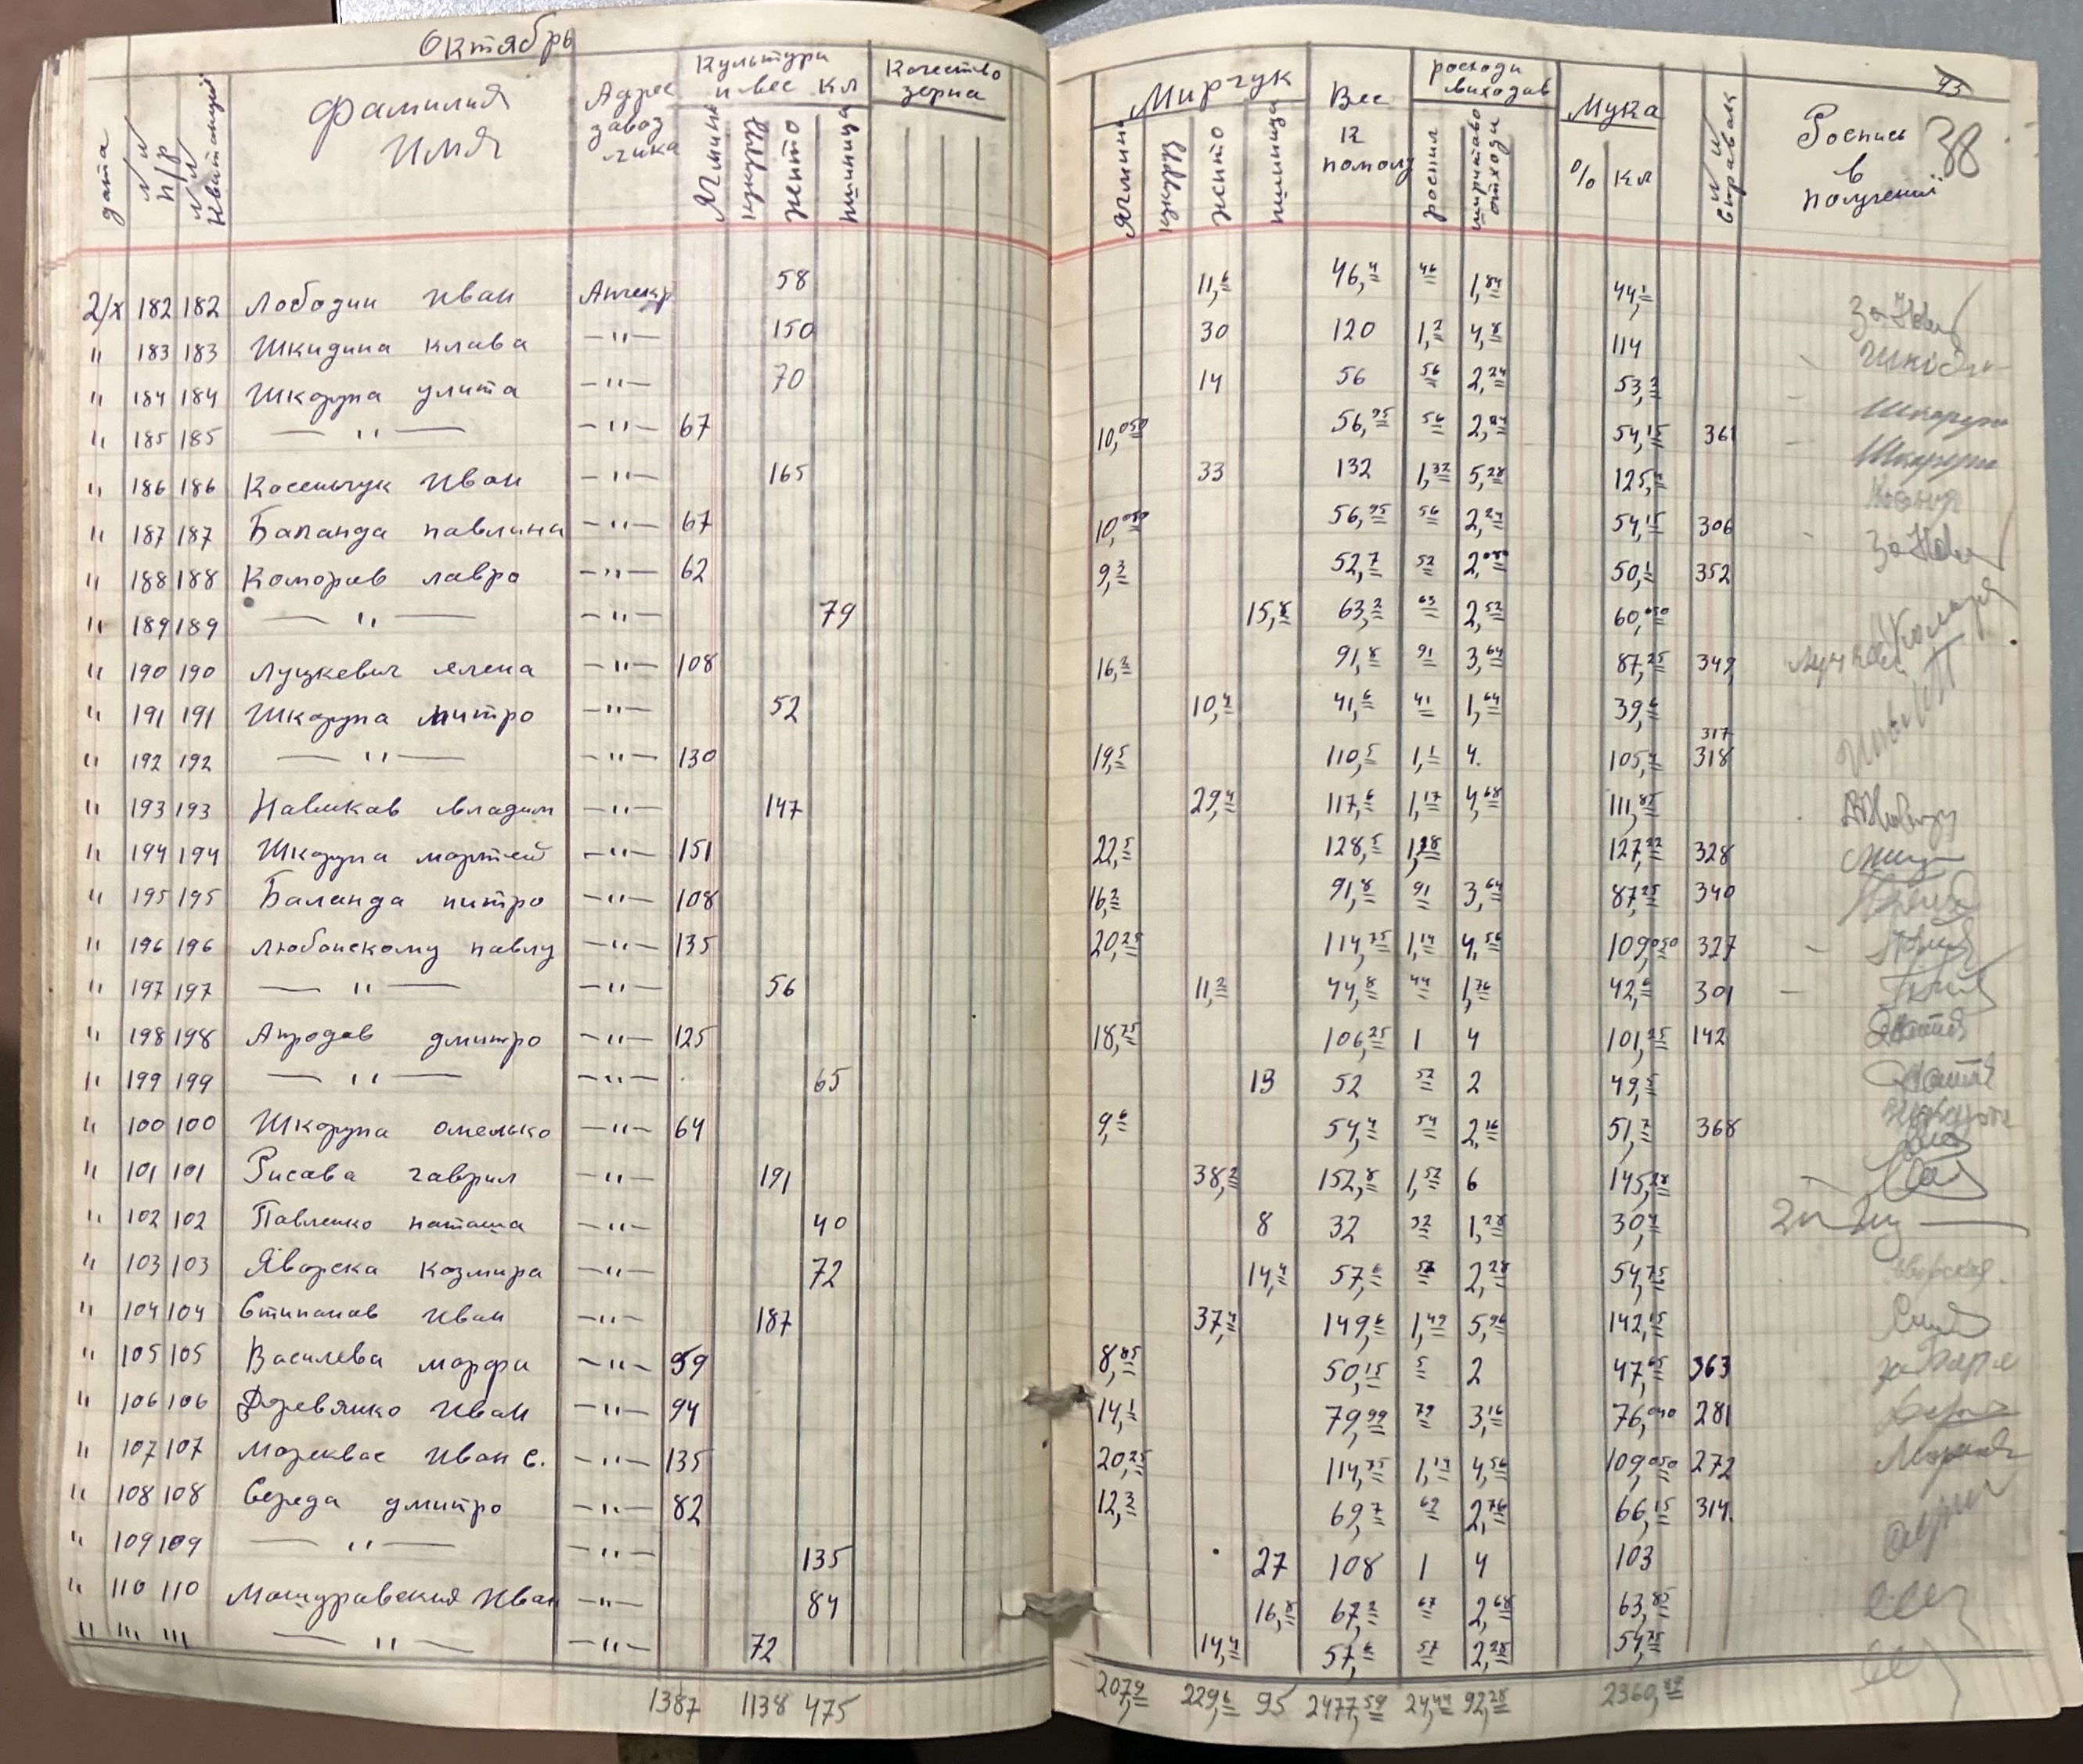 Октябрь
дата
№ № п/р
№ № квитанций
Фамилия Имя
Адрес завоз чика
Культура и вес кл
Ягминь
жито
пшиница
Качество зерна
Мирчук
Ягминь
жито
пшиница
Вес к помолу
росходи виходав
роспил
отходи
Мука
% кл
№ № справак
Роспись в получении
93
38
2/х 182 182 Лободин Иван 58 11,6 46,4 46 1,84 44,1
" 183 183 Шкидина клава —"— 150 30 120 1,2 4,8 114
" 184 184 Шкорупа улита —"— 70 14 56 56 2,24 53,2
" 185 185 — " — —"— 67 10,050 56,95 56 2,24 54,15 361
" 186 186 Косенчук Иван —"— 165 33 132 1,32 5,28 125,4
" 187 187 Баланда павлина —"— 67 10,050 56,95 56 2,24 54,15 306
" 188 188 Коморав лавро —"— 62 9,3 52,7 52 2,080 50,1 352
" 189 189 — " — —"— 79 15,8 63,2 63 2,52 60,050
" 190 190 Луцкевич ялена —"— 108 16,2 91,8 91 3,64 87,25 349
" 191 191 Шкорупа митро —"— 52 10,4 41,6 41 1,64 39,6
" 192 192 — " — —"— 130 19,5 110,5 1,1 4. 105,4 317 318
" 193 193 Навикав владим —"— 147 29,4 117,6 1,17 4,68 111,85
" 194 194 Шкорупа мортей —"— 151 22,5 128,5 1,28 127,22 328
" 195 195 Баланда митро —"— 108 16,2 91,8 91 3,64 87,25 340
" 196 196 Любонскому павлу —"— 135 20,25 114,75 1,14 4,56 109,050 327
" 197 197 — " — —"— 56 11,2 44,8 44 1,76 42,6 301
" 198 198 Апродав дмитро —"— 125 18,75 106,25 1 4 101,25 142
" 199 199 — " — —"— 65 13 52 52 2 49,5
" 100 100 Шкорупа омелько —"— 64 9,6 54,4 54 2,16 51,7 368
" 101 101 Рисава гаврил —"— 191 38,2 152,8 1,52 6 145,28
" 102 102 Павленко наташа —"— 40 8 32 32 1,28 30,4
" 103 103 Яворска козмира —"— 72 14,4 57,6 57 2,28 54,75
" 104 104 Стипанав Иван —"— 187 37,4 149,6 1,49 5,96 142,15
" 105 105 Василева морфа —"— 59 8,85 50,15 5 2 47,65 363
" 106 106 Деревянко Иван —"— 94 14,1 79,99 79 3,16 76,040 281
" 107 107 Мореквас Иван С. —"— 135 20,25 114,75 1,14 4,56 109,050 272
" 108 108 Середа дмитро —"— 82 12,3 69,7 69 2,76 66,15 314.
" 109 109 — " — —"— 135 27 108 1 4 103
" 110 110 Мошуравский Иван —"— 84 16,8 67,2 67 2,68 63,85
" 111 111 — " — —"— 72 14,4 57,6 57 2,28 54,75
1387 1138 475 207,9 229,6 95 2477,59 24,44 92,28